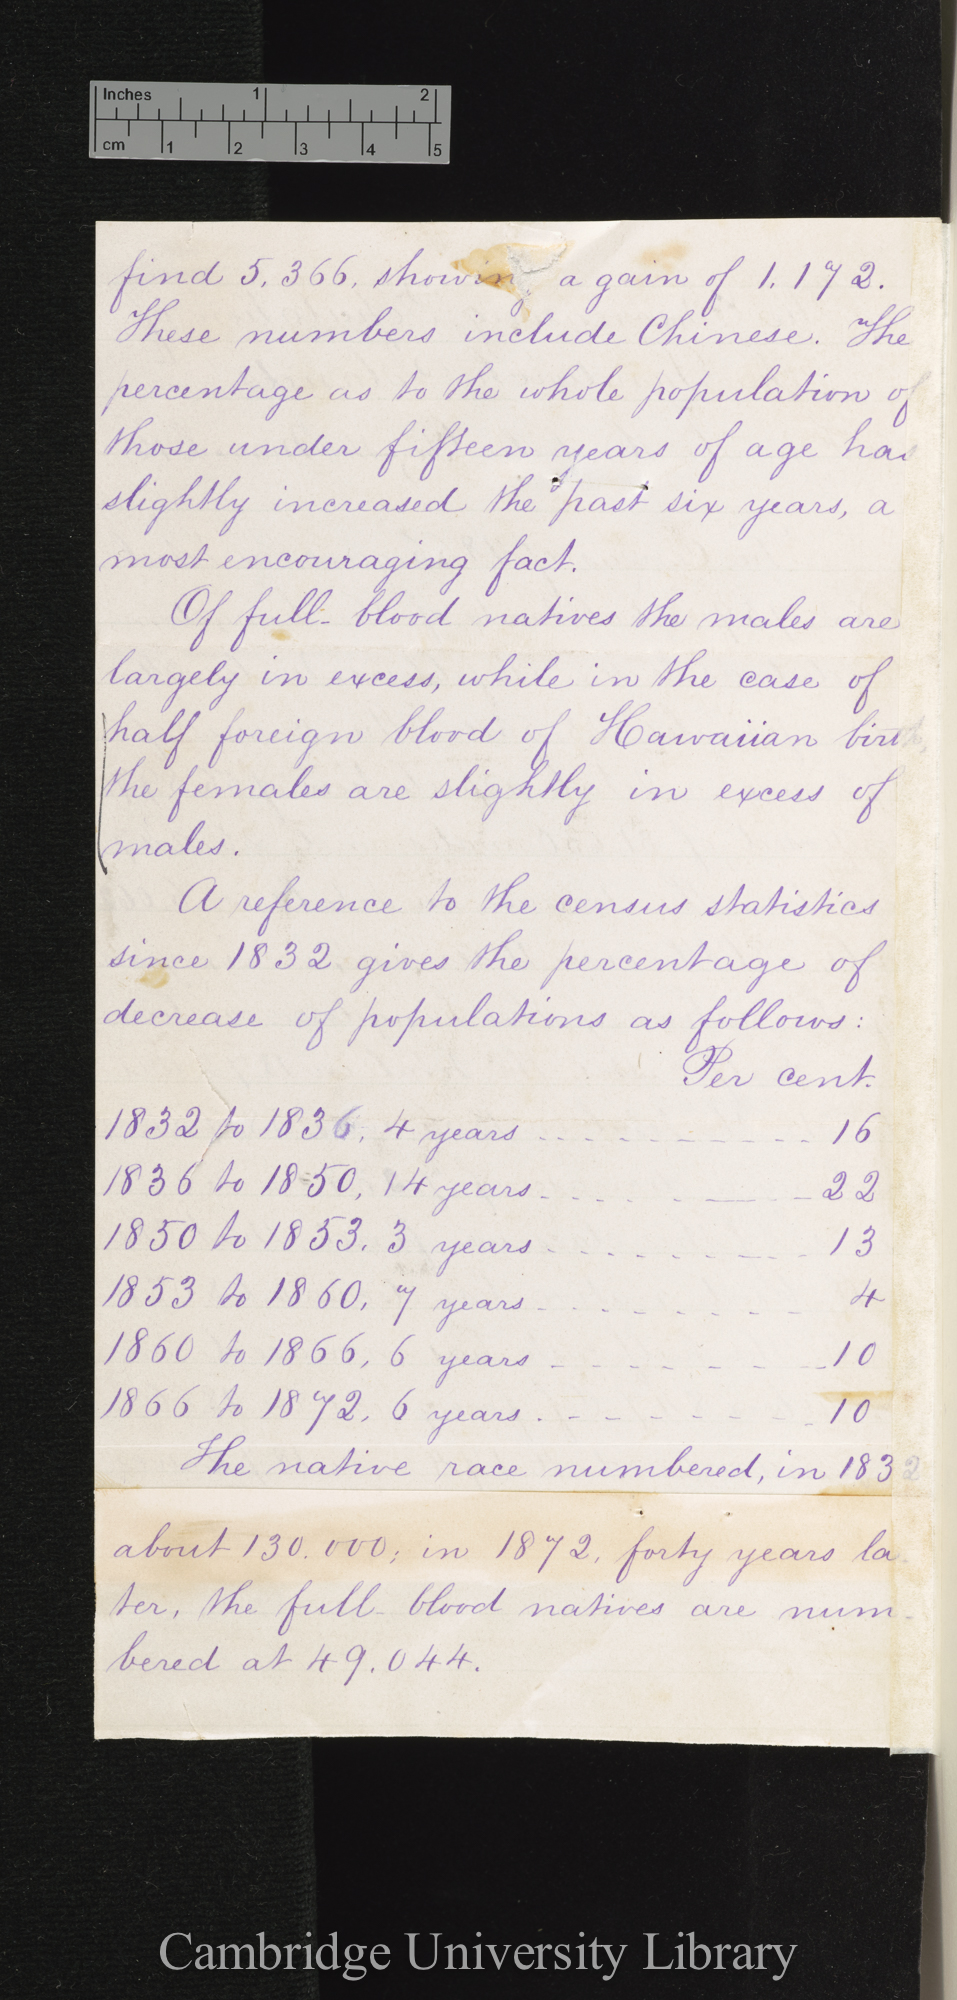 Inches 1 2
cm 1 2 3 4 5
find 5,366, showing a gain of 1,172.
These numbers include Chinese. The
percentage as to the whole population of
those under fifteen years of age has
slightly increased the past six years, a
most encouraging fact.
Of full-blood natives the males are
largely in excess, while in the case of
half foreign blood of Hawaiian birth,
the females are slightly in excess of
males.
A reference to the census statistics
since 1832 gives the percentage of
decrease of populations as follows:
Per cent.
1832 to 1836, 4 years ........... 16
1836 to 1850, 14 years ........... 22
1850 to 1853, 3 years ........... 13
1853 to 1860, 7 years ........... 4
1860 to 1866, 6 years ........... 10
1866 to 1872, 6 years ........... 10
The native race numbered, in 1832
about 130.000; in 1872, forty years la
ter, the full-blood natives are num-
bered at 49.044.
Cambridge University Library